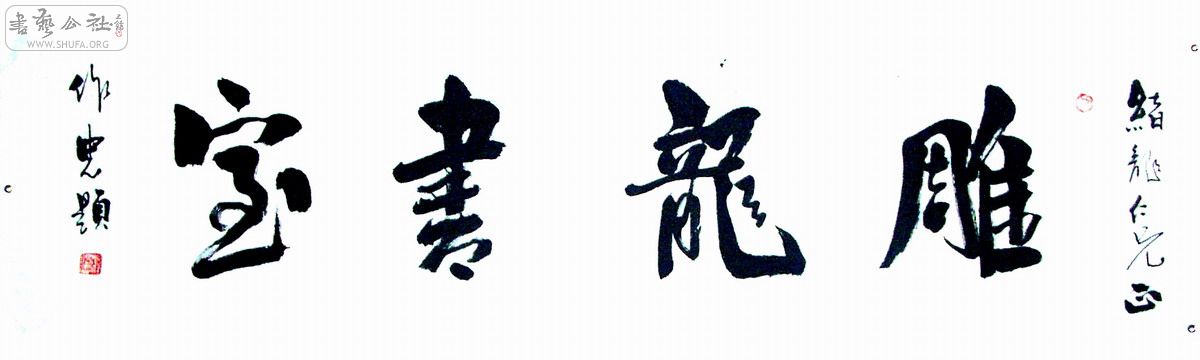 緒龍仁兄正
雕龍書室
作忠題
書藝公社
WWW.SHUFA.ORG